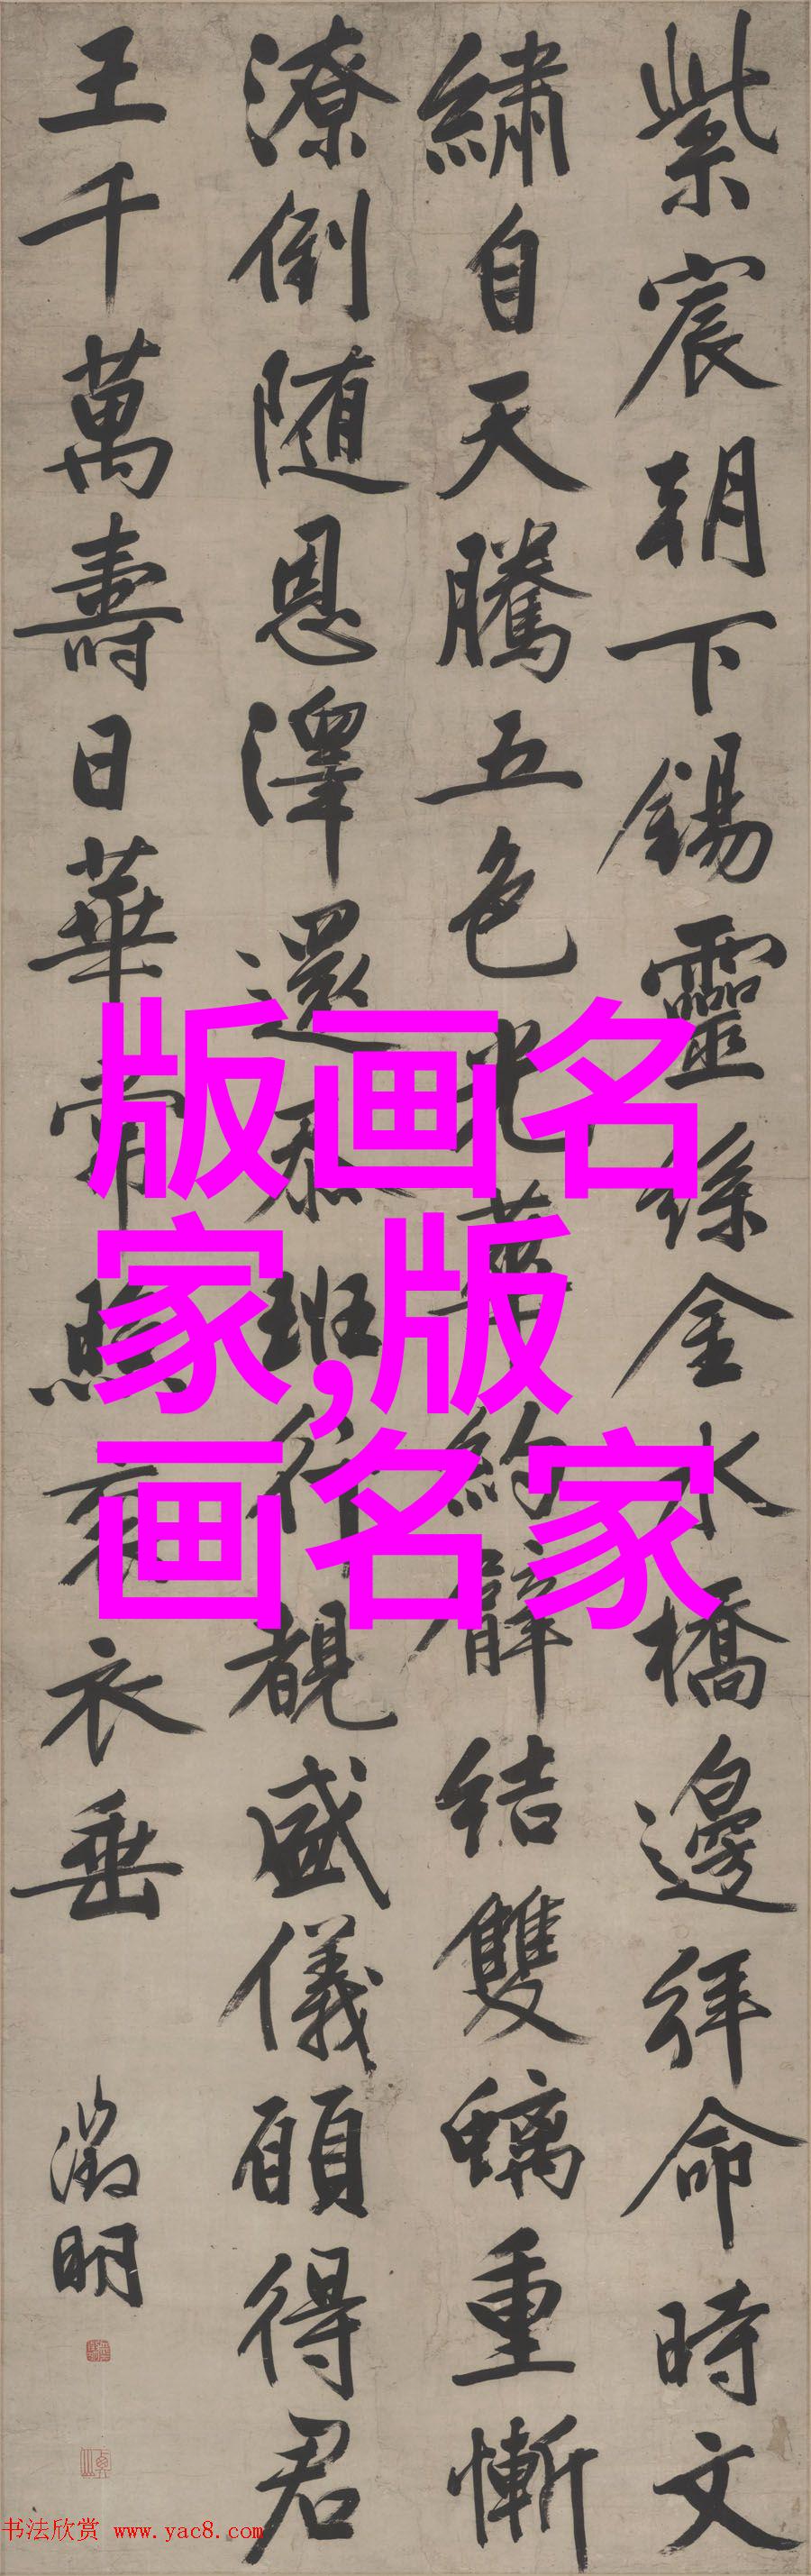 紫宸朝下錫靈絲金水橋邊拜命時文
繡自天騰五色光華約臂結雙螭重慚
潦倒随恩澤還忝班行覩盛儀願得君
王千萬壽日華常照袞衣垂
徵明
版画名
家,版
画名家
书法欣赏 www.yac8.com